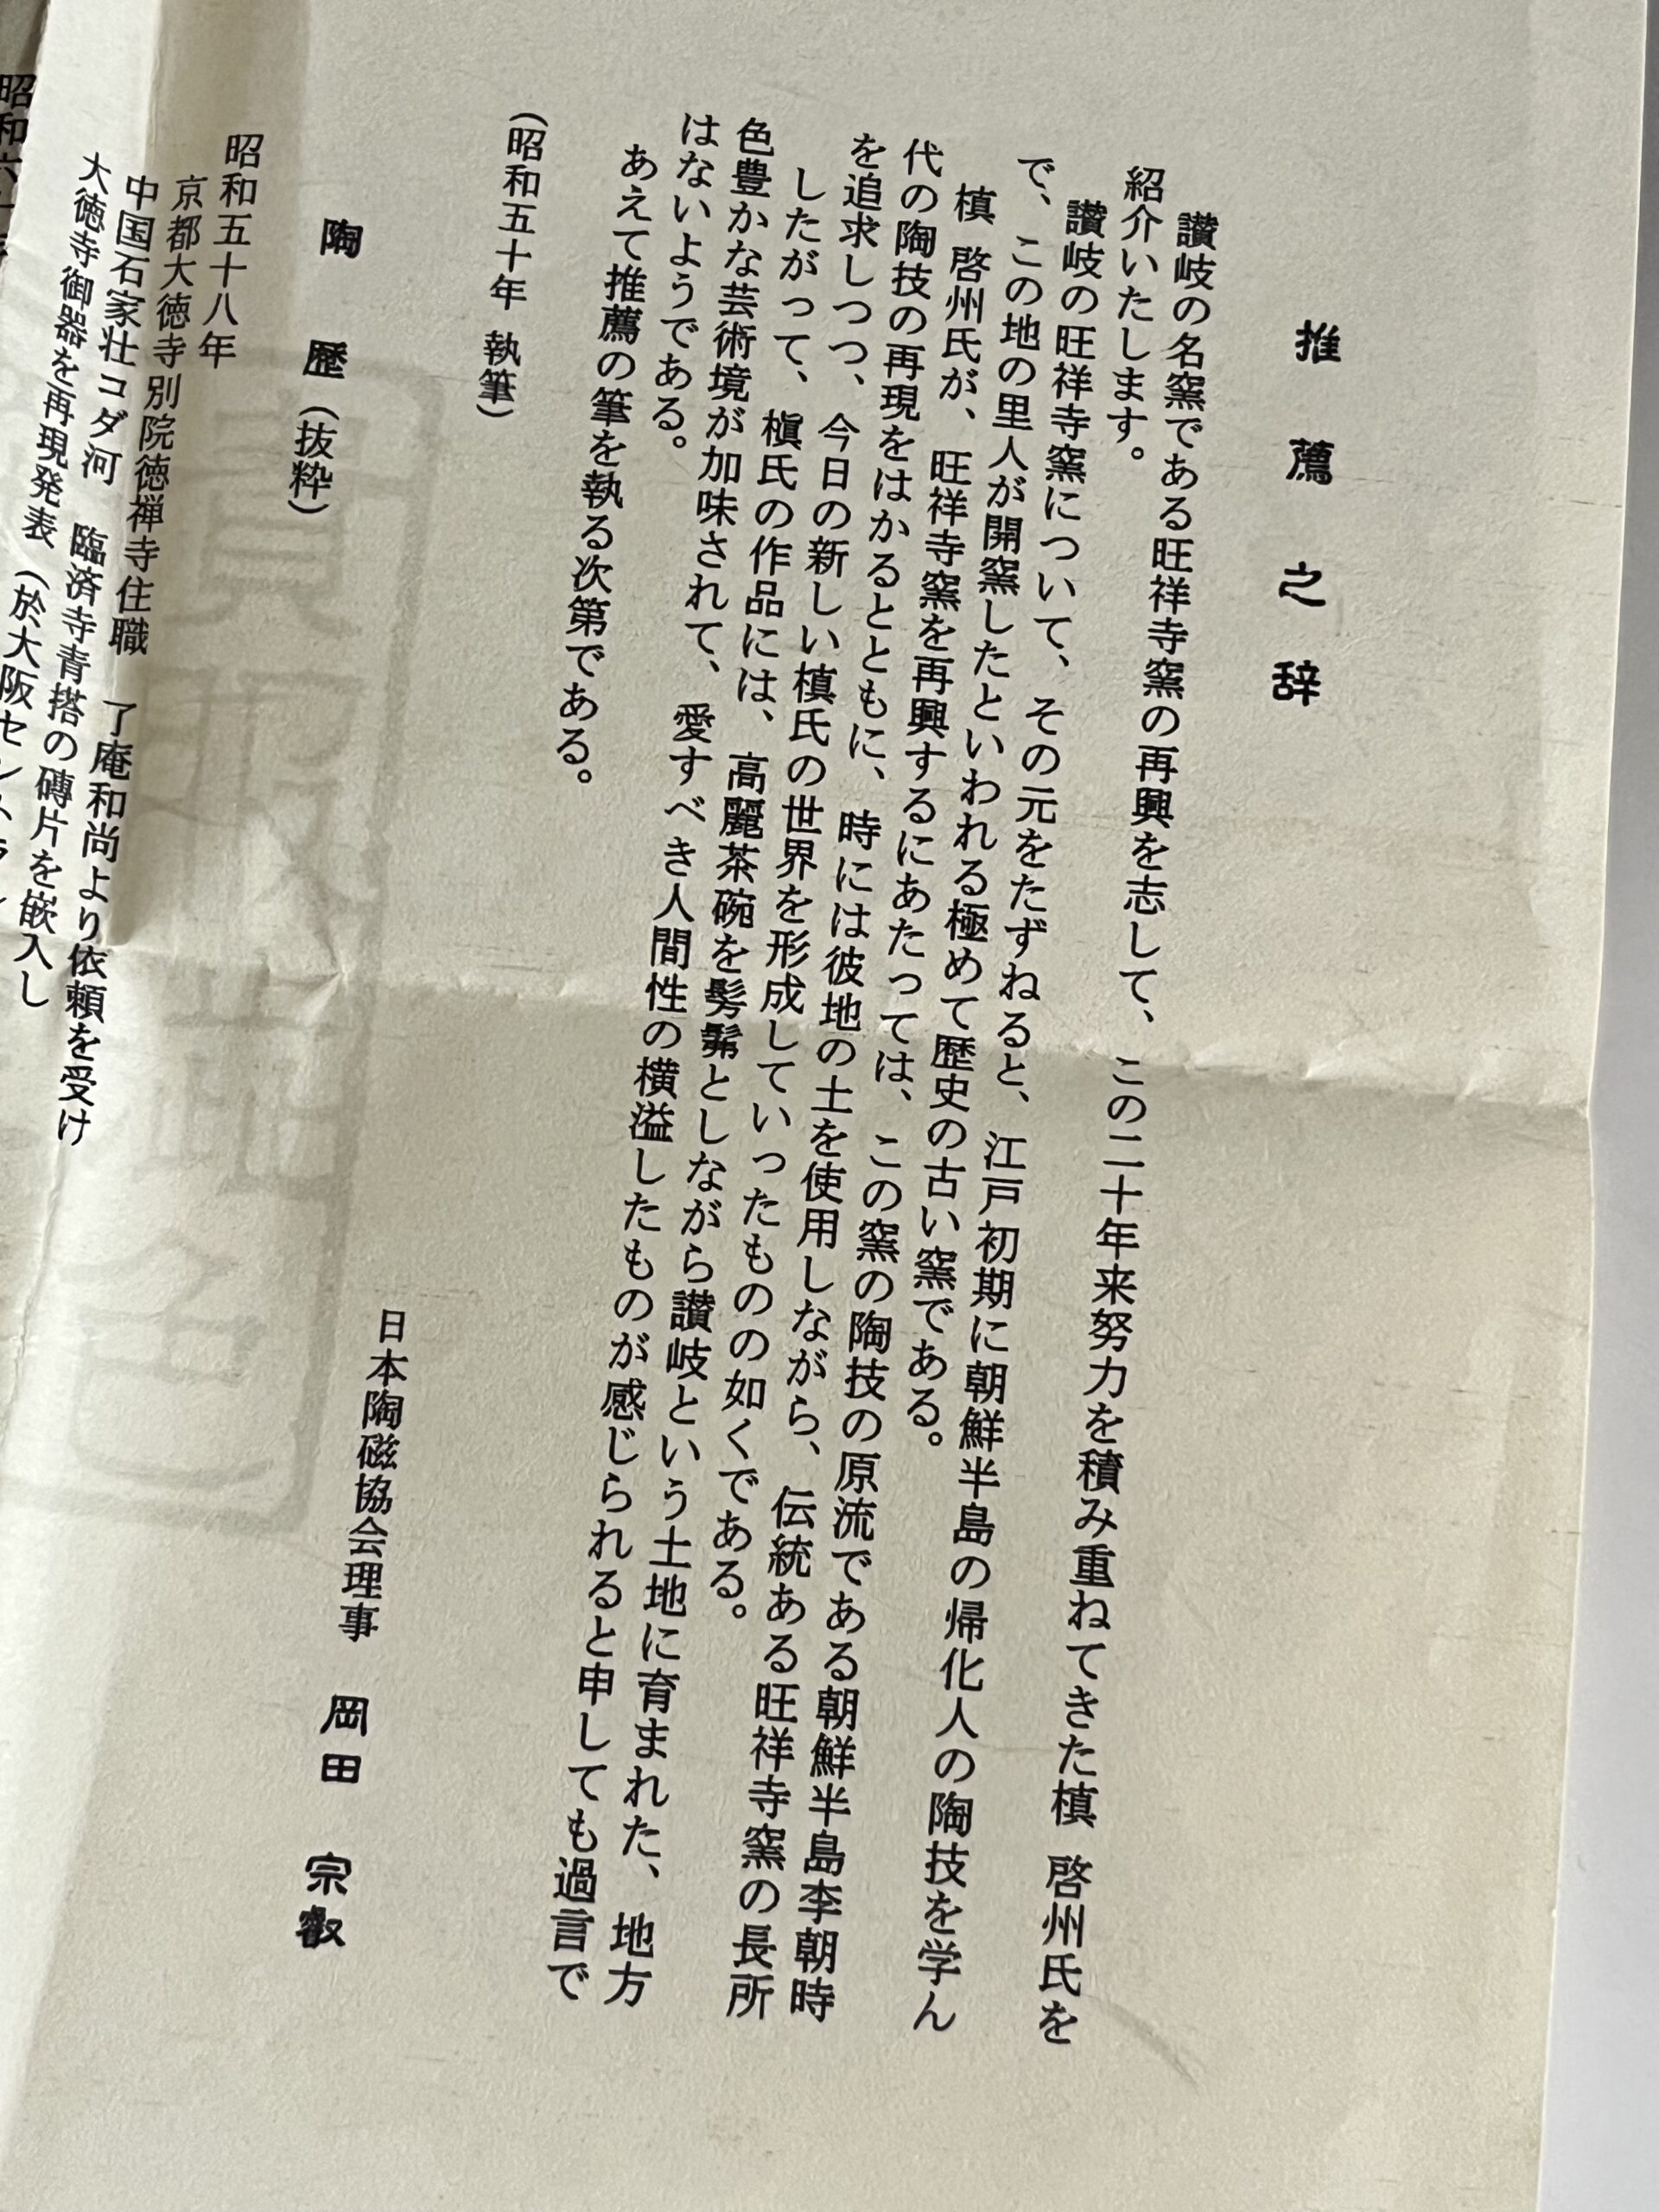 推薦之辞
讃岐の名窯である旺祥寺窯の再興を志して、この二十年来努力を積み重ねてきた槙 啓州氏を
紹介いたします。
讃岐の旺祥寺窯について、その元をたずねると、江戸初期に朝鮮半島の帰化人の陶技を学ん
で、この地の里人が開窯したといわれる極めて歴史の古い窯である。
槙 啓州氏が、旺祥寺窯を再興するにあたっては、この窯の陶技の原流である朝鮮半島李朝時
代の陶技の再現をはかるとともに、時には彼地の土を使用しながら、伝統ある旺祥寺窯の長所
を追求しつつ、今日の新しい槙氏の世界を形成していったものの如くである。
したがって、槇氏の作品には、高麗茶碗を髣髴としながら讃岐という土地に育まれた、地方
色豊かな芸術境が加味されて、愛すべき人間性の横溢したものが感じられると申しても過言で
はないようである。
あえて推薦の筆を執る次第である。
(昭和五十年 執筆)
日本陶磁協会理事 岡田 宗叡
陶歴(抜粋)
昭和五十八年
京都大徳寺別院徳禅寺住職 了庵和尚より依頼を受け
中国石家壮コダ河 臨済寺青搭の磚片を嵌入し
大徳寺御器を再現発表(於大阪セン
昭和六十